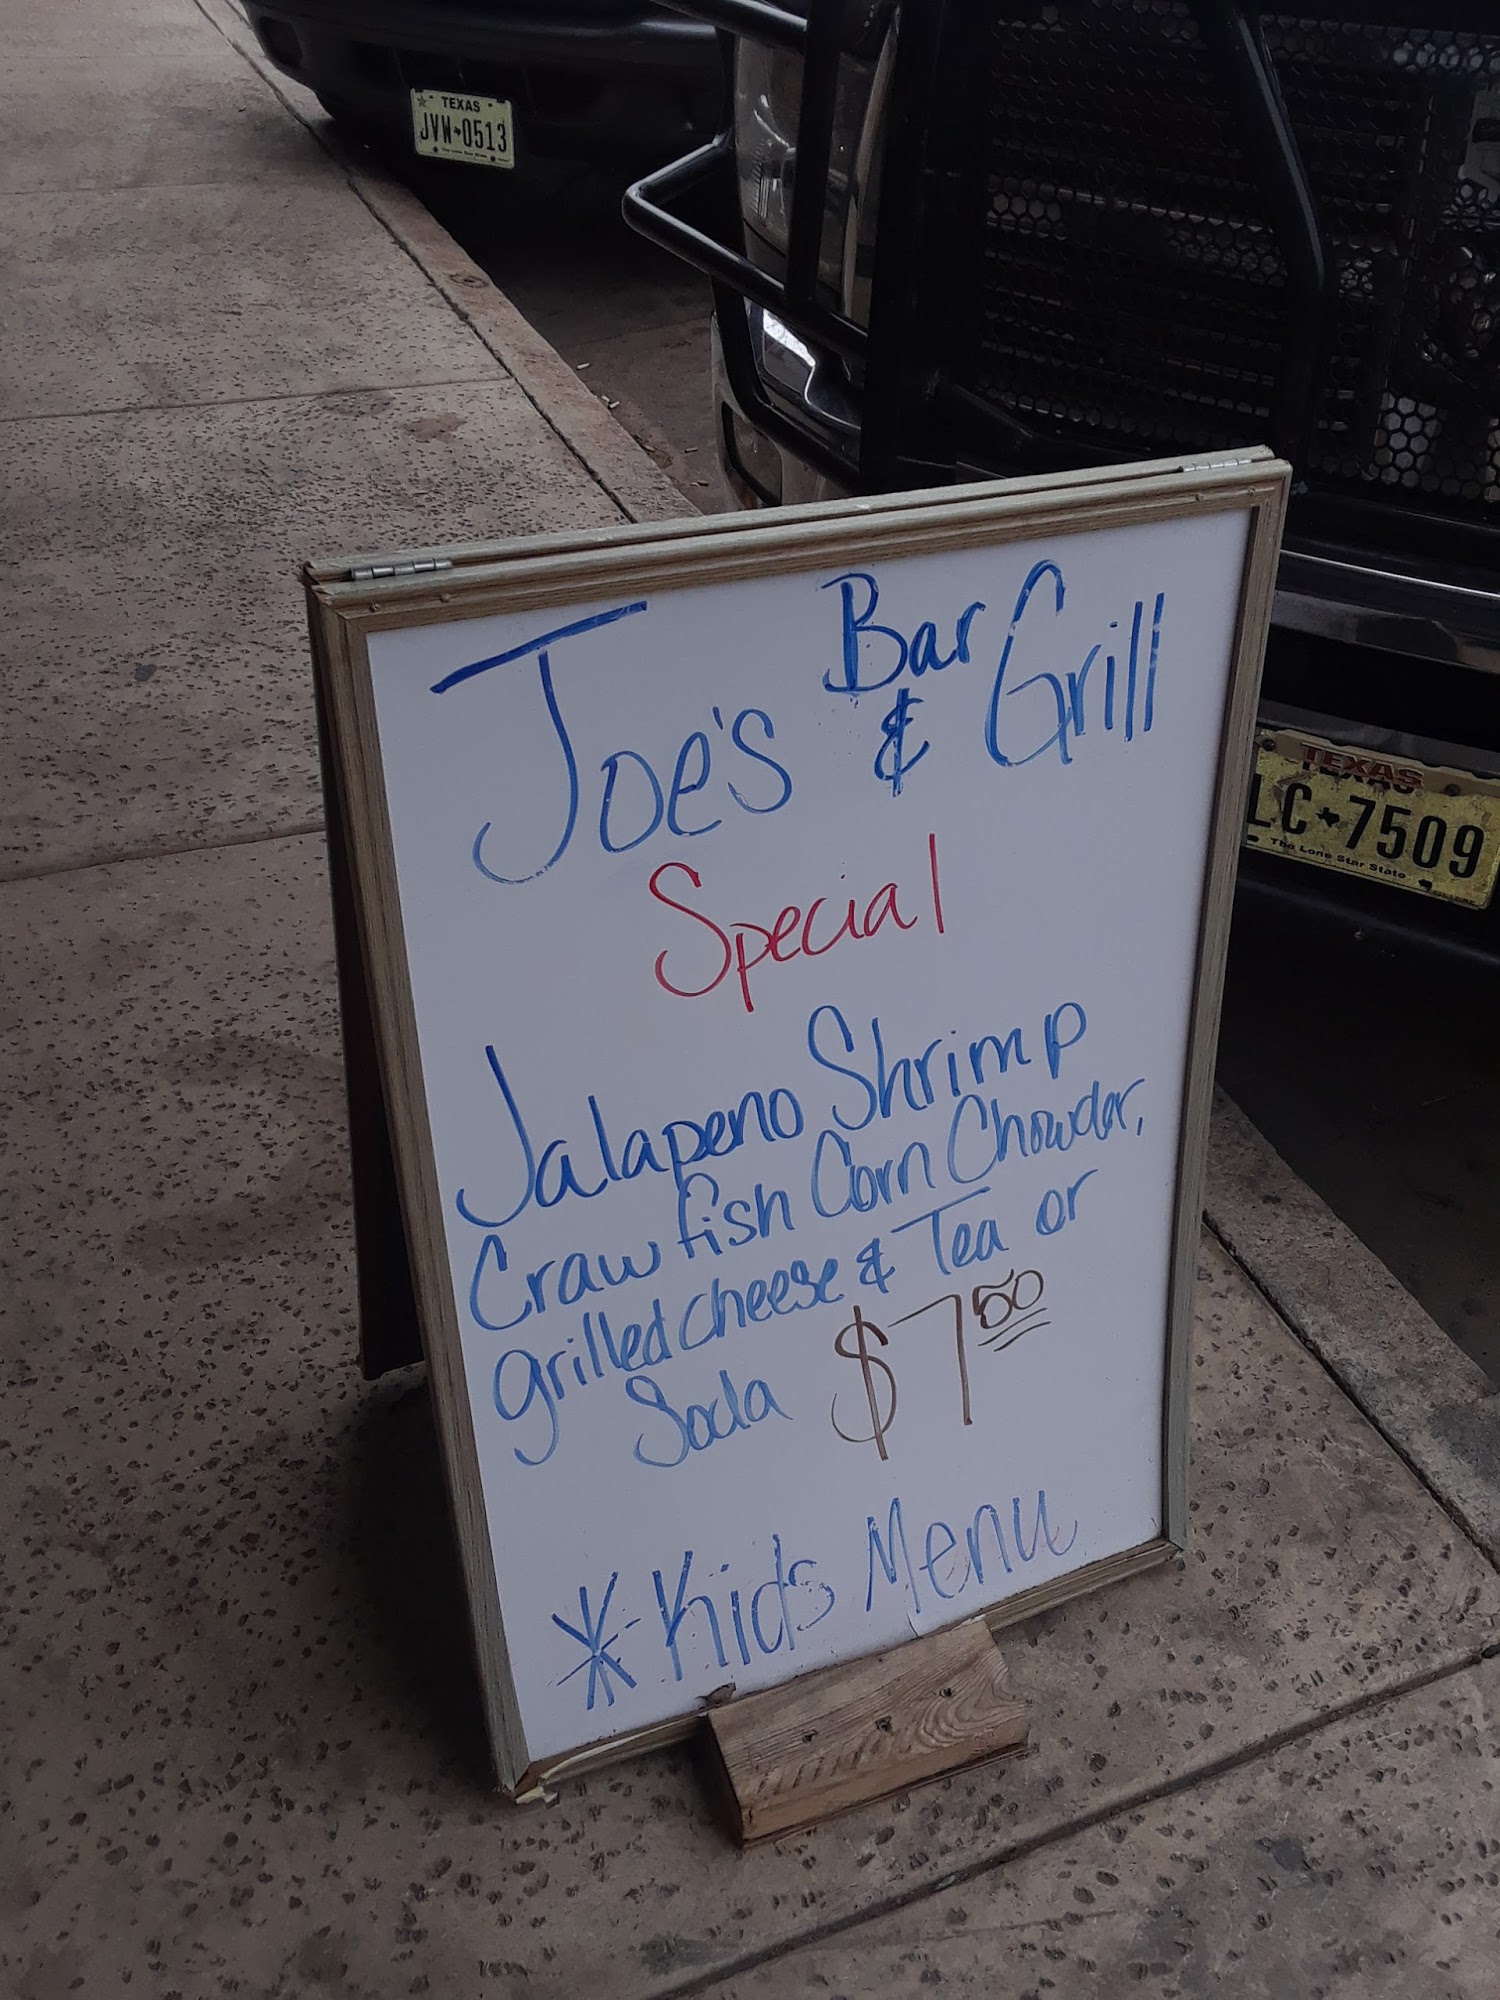 TEXAS
JVW★0513
The Lone Star State
Joe's Bar & Grill
Special
Jalapeno Shrimp
Crawfish Corn Chowder,
grilled cheese & Tea or
Soda $7.50
*Kids Menu
TEXAS
LC★7509
The Lone Star State